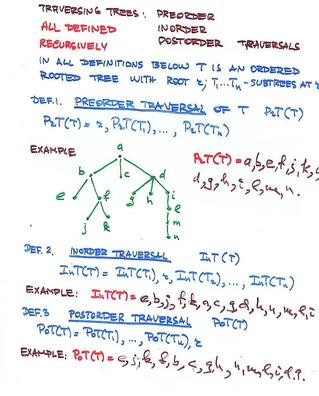 TRAVERSING TREES: PREORDER
ALL DEFINED INORDER
RECURSIVELY POSTORDER TRAVERSALS
IN ALL DEFINITIONS BELOW T IS AN ORDERED
ROOTED TREE WITH ROOT r; T1...Tn - SUBTREES AT r
DEF. 1 PREORDER TRAVERSAL OF T PrT(T)
PrT(T) = r, PrT(T1), ..., PrT(Tn)
EXAMPLE
PrT(T) = a, b, e, f, j, k, c,
d, g, h, i, l, m, n.
a
b c d
e f g h i
j k l
m
n
DEF. 2. INORDER TRAVERSAL InT(T)
InT(T) = InT(T1), r, InT(T2), ..., InT(Tn)
EXAMPLE: InT(T) = e, b, j, f, k, a, c, g, d, h, n, m, l, i
DEF. 3 POSTORDER TRAVERSAL PoT(T)
PoT(T) = PoT(T1), ..., PoT(Tn), r
EXAMPLE: PoT(T) = e, j, k, f, b, c, g, h, n, m, l, i, d, a.